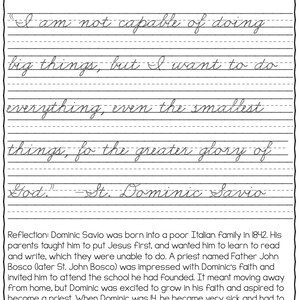 "I am not capable of doing
big things, but I want to do
everything, even the smallest
things, fo the greater glory of
God." -St. Dominic Savio
Reflection: Dominic Savio was born into a poor Italian family in 1842. His
parents taught him to put Jesus first, and wanted him to learn to read
and write, which they were unable to do. A priest named Father John
Bosco (later St. John Bosco) was impressed with Dominic's faith and
invited him to attend the school he had founded. It meant moving away
from home, but Dominic was excited to grow in his faith and aspired to
become a priest. When Dominic was 14, he became very sick and had to